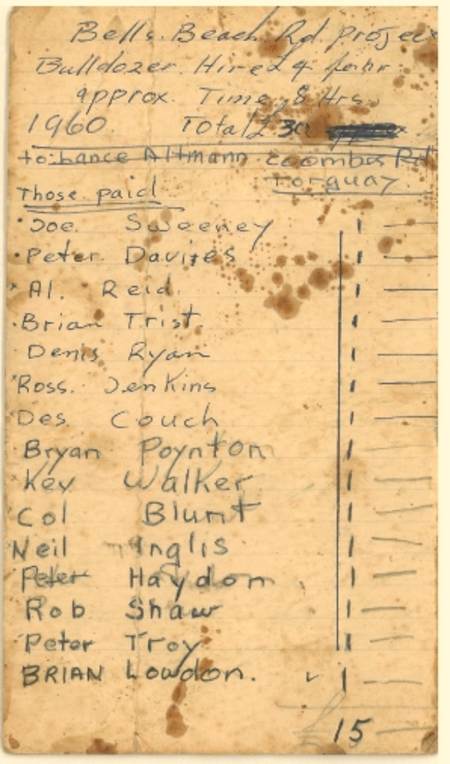 Bells. Beach Rd. Projec
Bulldozer. Hire £4 per hr
approx. Time 8 Hrs.
1960 Total £ 30
to: Lance Altmann Coombes Rd
Torquay.
Those paid
Joe. Sweeney 1 —
Peter Davies 1 —
Al. Reid 1 —
Brian Trist 1 —
Denis Ryan 1 —
Ross. Jenkins 1 —
Des. Couch 1 —
Bryan Poynton 1 —
Kev Walker 1 —
Col Blunt 1 —
Neil Inglis 1 —
Peter Haydon 1 —
Rob Shaw 1 —
Peter Troy 1 —
BRIAN Lowdon. ✓ 1 —
£15 —